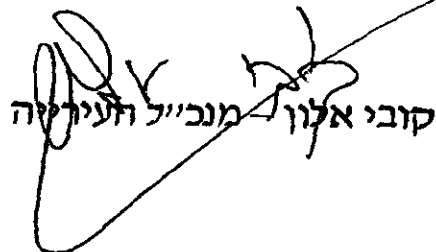 קובי אלון – מנכ״ל העירייה